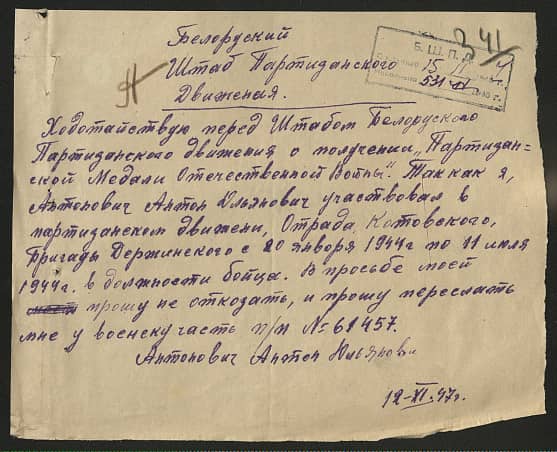 Белоруский
341
Б. Ш. П. Д.
Штаб Партизанского
15
531
Движения.
Ходотайствую перед Штабом Белоруского
Партизанского движения о получении „Партизан=
ской Медали Отечественной Войны". Так как я,
Антонович Антон Ульянович участвовал в
партизанском движени, Отрада, Котовского,
Бригады Держинского с 20 января 1944г по 11 июля
1944г. в должности бойца. В просьбе моей
прошу не отказать, и прошу переслать
мне у военску часть п/п № 61457.
Антонович Антон Ульянови
12-XI. 47г.